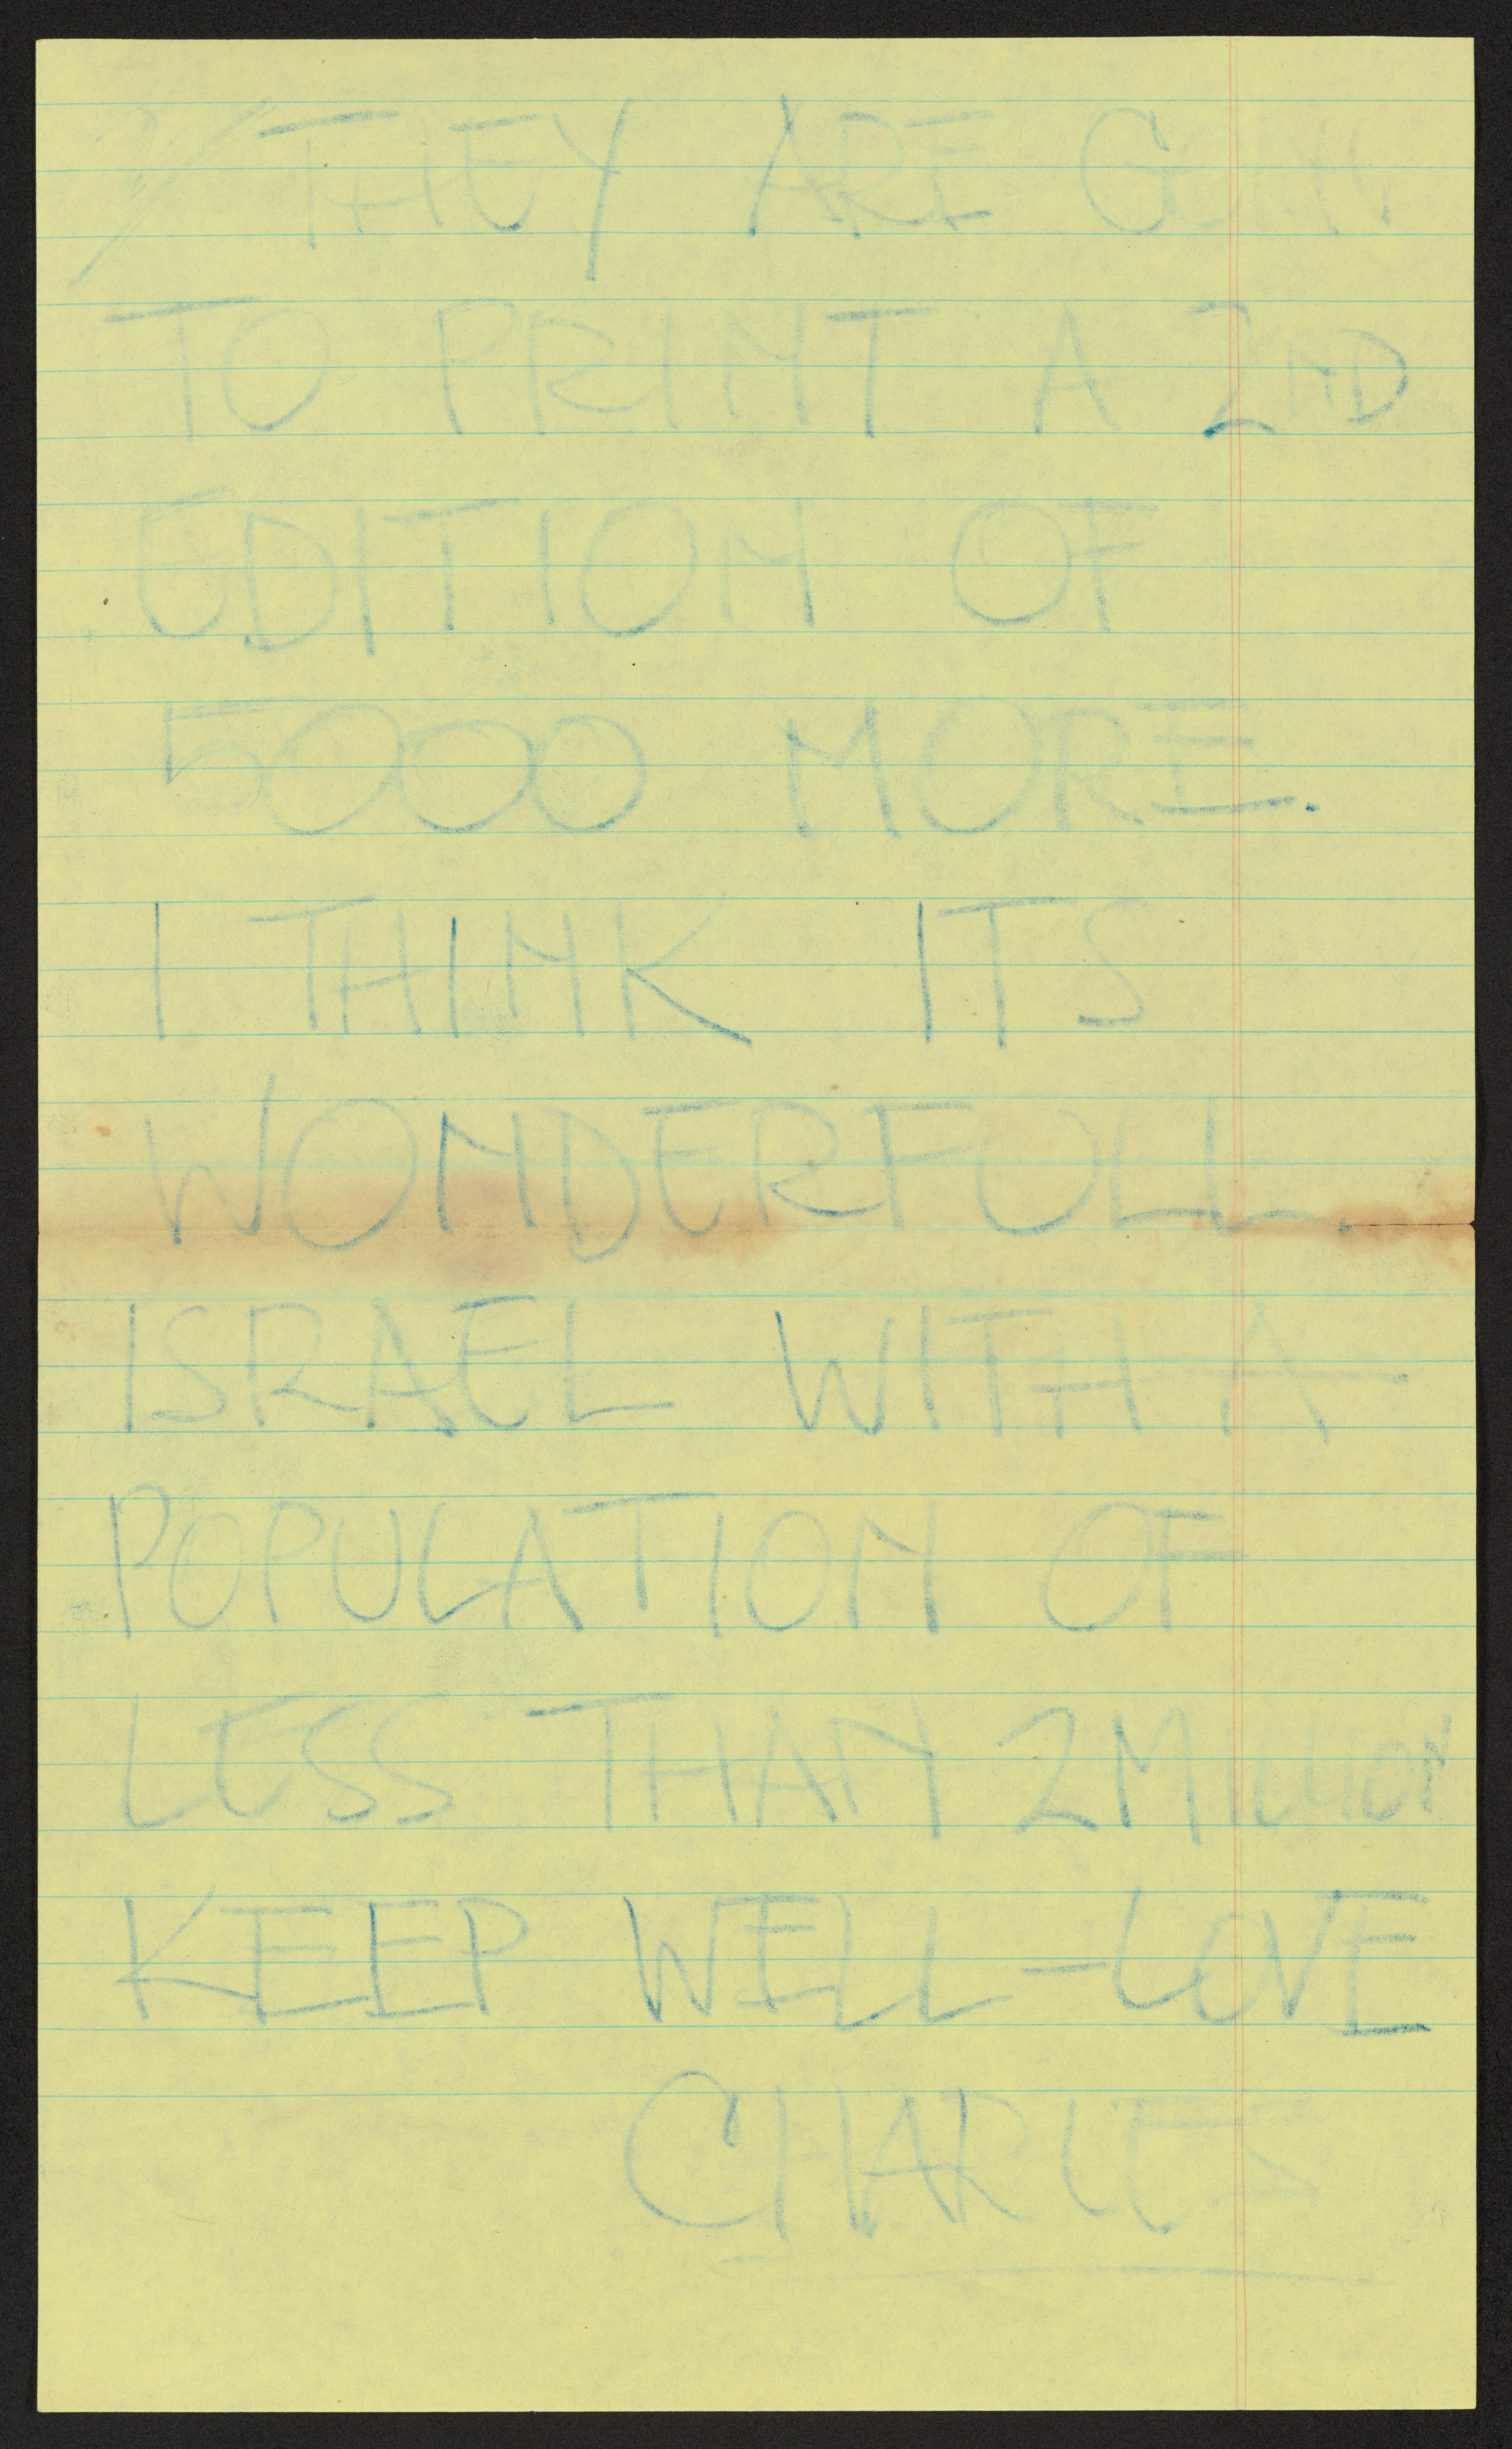 THEY ARE GOIN
TO PRINT A 2ND
EDITION OF
5000 MORE.
I THINK ITS
WONDERFULL.
ISRAEL WITH A
POPULATION OF
LESS THAN 2 MILLION
KEEP WELL - LOVE
CHARLES